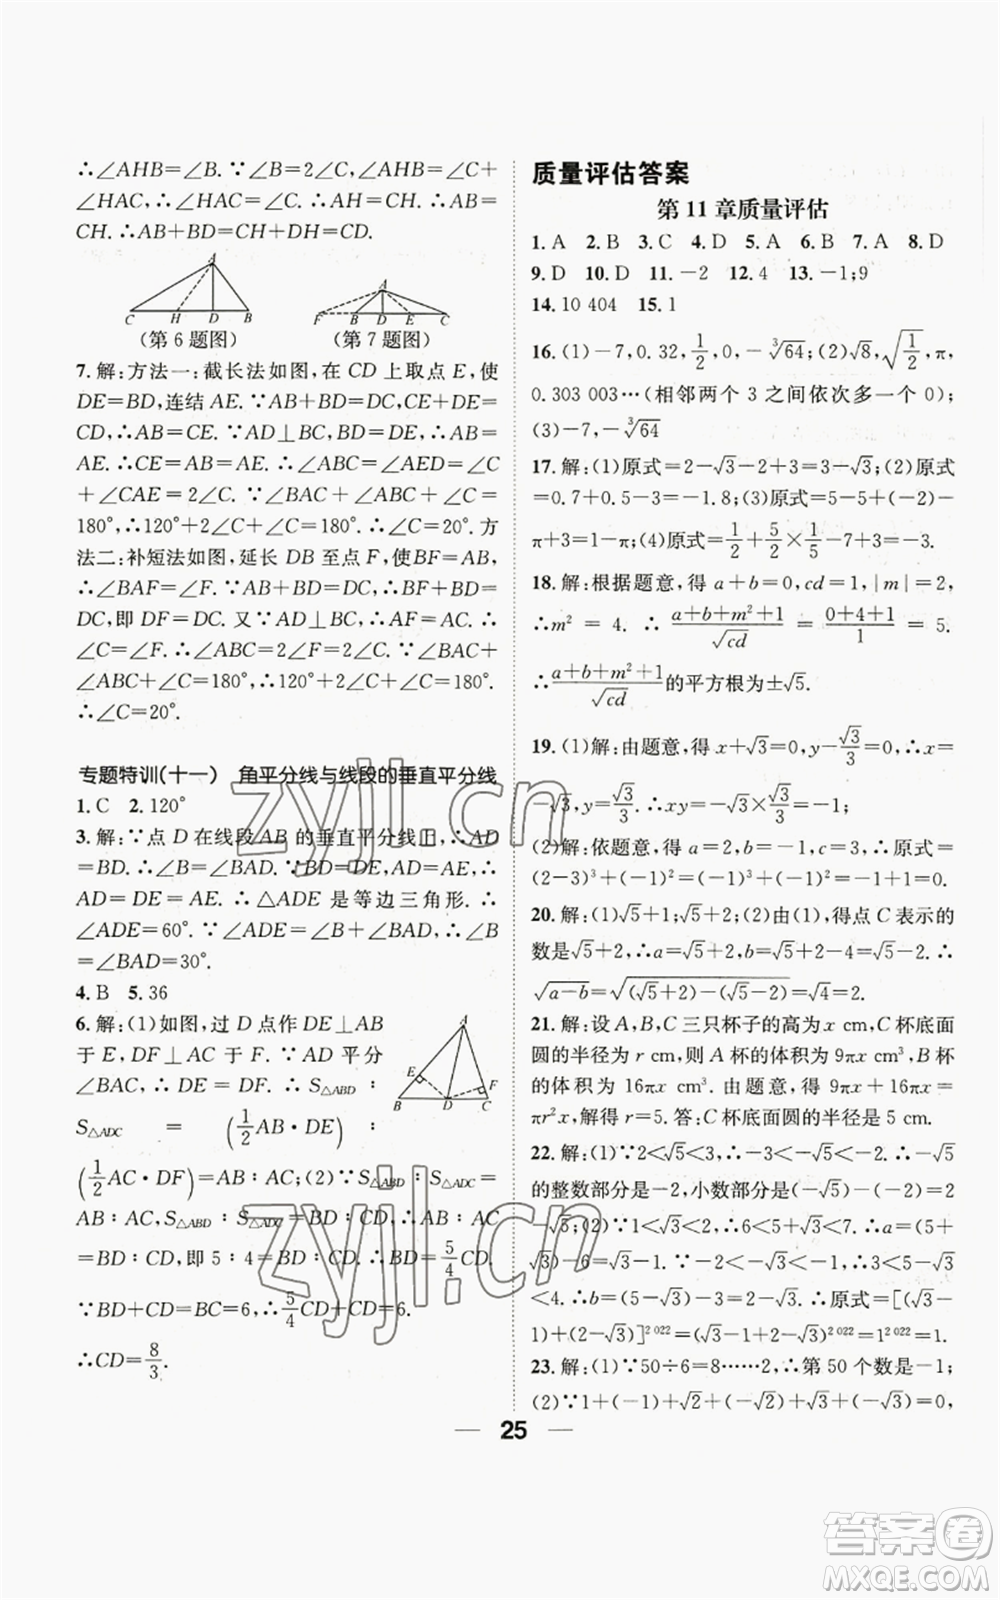 ∴∠AHB=∠B. ∵∠B=2∠C,∴∠AHB=∠C+
∠HAC=2∠C. ∴∠HAC=∠C. ∴AH=CH. ∴AB=
CH. ∴AB+BD=CH+DH=CD.
A
C H D B
(第6题图)
A
F B D E C
(第7题图)
7.解:方法一:截长法如图,在 CD 上取点 E,使
DE=BD,连结 AE. ∵AB+BD=DC,CE+DE=
CD,∴AB=CE. ∵AD⊥BC,BD=DE. ∴AB=
AE. ∴CE=AE. ∴∠ABC=∠AED=∠C
+∠CAE=2∠C. ∵∠BAC+∠ABC+∠C=
180°,∴120°+2∠C+∠C=180°. ∴∠C=20°. 方
法二:补短法如图,延长 DB 至点 F,使BF=AB,
∴∠BAF=∠F. ∵AB+BD=DC,∴BF+BD=
DC,即 DF=DC. 又∵AD⊥BC,∴AF=AC. ∴
∠C=∠F. ∴∠ABC=2∠F=2∠C. ∵∠BAC+
∠ABC+∠C=180°,∴120°+2∠C+∠C=180°.
∴∠C=20°.
专题特训(十一) 角平分线与线段的垂直平分线
1. C 2. 120°
3.解:∵点 D 在线段 AB 的垂直平分线上,∴AD
=BD. ∴∠B=∠BAD. ∵BD=DE,AD=AE.
∴AD=DE=AE. ∴△ADE 是等边三角形. ∴
∠ADE=60°. ∵∠ADE=∠B+∠BAD,∴∠B
=∠BAD=30°.
4. B 5. 36
6.解:(1)如图,过 D 点作 DE⊥AB
于 E,DF⊥AC 于 F. ∵AD 平分
∠BAC,∴DE=DF. ∴S△ABD :
S△ADC = (1/2 AB·DE) :
(1/2 AC·DF)=AB:AC;(2)∵S△ABD:S△ADC=
AB:AC,S△ABD:S△ADC=BD:CD,∴AB:AC
=BD:CD,即 5:4=BD:CD. ∴BD=5/4 CD.
∵BD+CD=BC=6,∴5/4 CD+CD=6.
∴CD=8/3.
A
E F
B D C
质量评估答案
第 11 章质量评估
1. A 2. B 3. C 4. D 5. A 6. B 7. A 8. D
9. D 10. D 11. −2 12. 4 13. −1;9
14. 10 404 15. 1
16. (1)−7,0.32,1/2,0,−∛64;(2)√8,√(1/2),π,
0.303 003…(相邻两个 3 之间依次多一个 0);
(3)−7,−∛64
17.解:(1)原式=2−√3−2+3=3−√3;(2)原式
=0.7+0.5−3=−1.8;(3)原式=5−5+(−2)−
π+3=1−π;(4)原式=1/2+5/2×1/5−7+3=−3.
18.解:根据题意,得 a+b=0,cd=1,|m|=2,
∴m² = 4. ∴ (a+b+m²+1)/√cd = (0+4+1)/1 = 5.
∴(a+b+m²+1)/√cd的平方根为±√5.
19.(1)解:由题意,得 x+√3=0,y−√3/3=0,∴x=
−√3,y=√3/3. ∴xy=−√3×√3/3=−1;
(2)解:依题意,得 a=2,b=−1,c=2,∴原式=
(2−3)³+(−1+2)²=(−1)³+(+1)²=−1+1=0.
20.解:(1)√5+1;√5+2;(2)由(1),得点 C 表示的
数是√5+2,∴a=√5+2,b=√5+2−4=√5−2. ∴
√(a−b)=√((√5+2)−(√5−2))=√4=2.
21.解:设 A,B,C 三只杯子的高为 x cm,C 杯底面
圆的半径为 r cm,则 A 杯的体积为 9πx cm³,B 杯
的体积为 16πx cm³. 由题意,得 9πx+16πx=
πr²x,解得 r=5. 答:C 杯底面圆的半径是 5 cm.
22.解:(1)∵2<√5<3,∴−3<−√5<−2. ∴−√5
的整数部分是−2,小数部分是(−√5)−(−2)=2
−√5;(2)∵1<√3<2,∴6<5+√3<7. ∴a=(5+
√3)−6=√3−1. ∵−2<−√3<−1,∴3<5−√3
<4. ∴b=(5−√3)−3=2−√3. ∴原式=[(√3−
1)+(2−√3)]²⁰²²=(√3−1+2−√3)²⁰²²=1²⁰²²=1.
23.解:(1)∵50÷6=8……2,∴第 50 个数是−1;
(2)∵1+(−1)+√2+(−√2)+√3+(−√3)=0,
25
zyjl.cn
zyjl.cn
答案圈
MXQE.COM